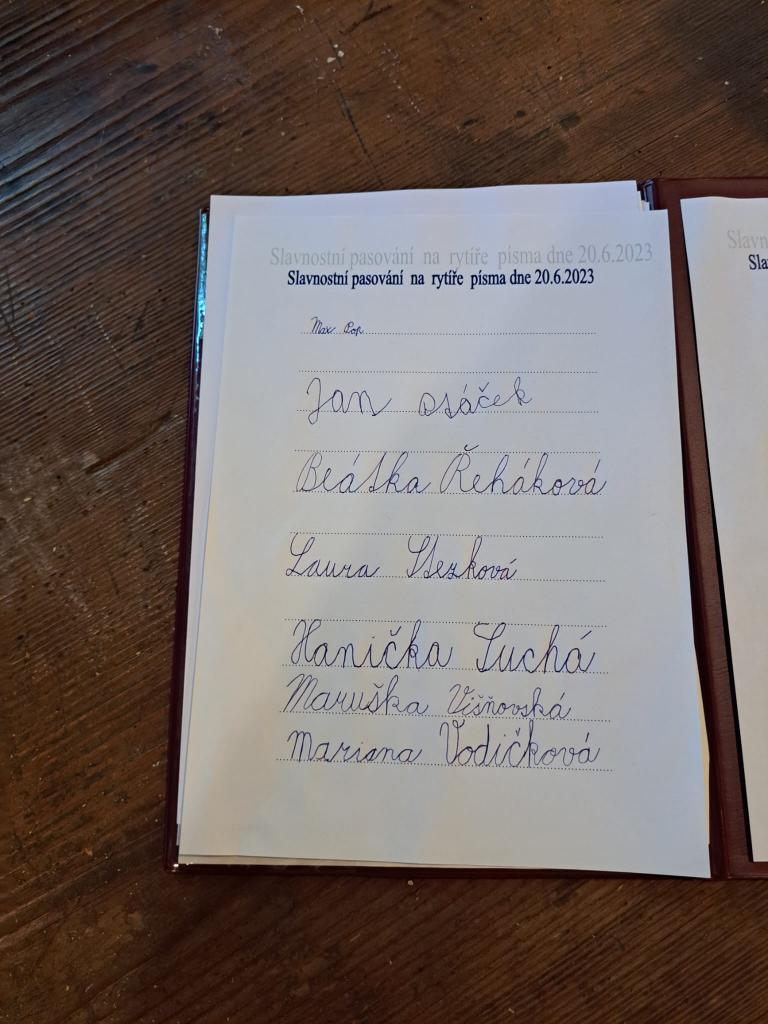 Slavnostní pasování na rytíře písma dne 20.6.2023
Slavnostní pasování na rytíře písma dne 20.6.2023
Max Pop
Jan
Beátka Řeháková
Laura
Hanička Suchá
Maruška Višňovská
Mariana Vodičková
Slavn
Sla